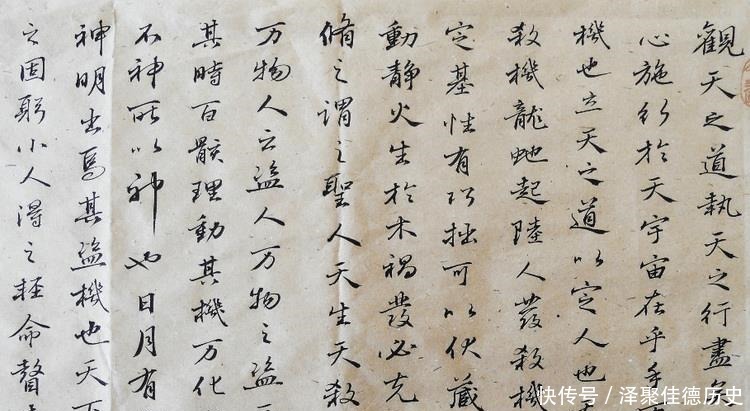 觀天之道執天之行盡
心施行於天宇宙在乎手
機也立天之道以定人也
殺機龍虵起陸人發殺機
定基性有巧拙可以伏藏
動靜火生於木禍發必克
脩之謂之聖人天生天殺
万物人之盜人万物之盜
其時百骸理動其機万化
不神所以神也日月有
神明出焉其盜機也天下
之固躬小人得之輕命瞽
快传号 / 泽聚佳德历史